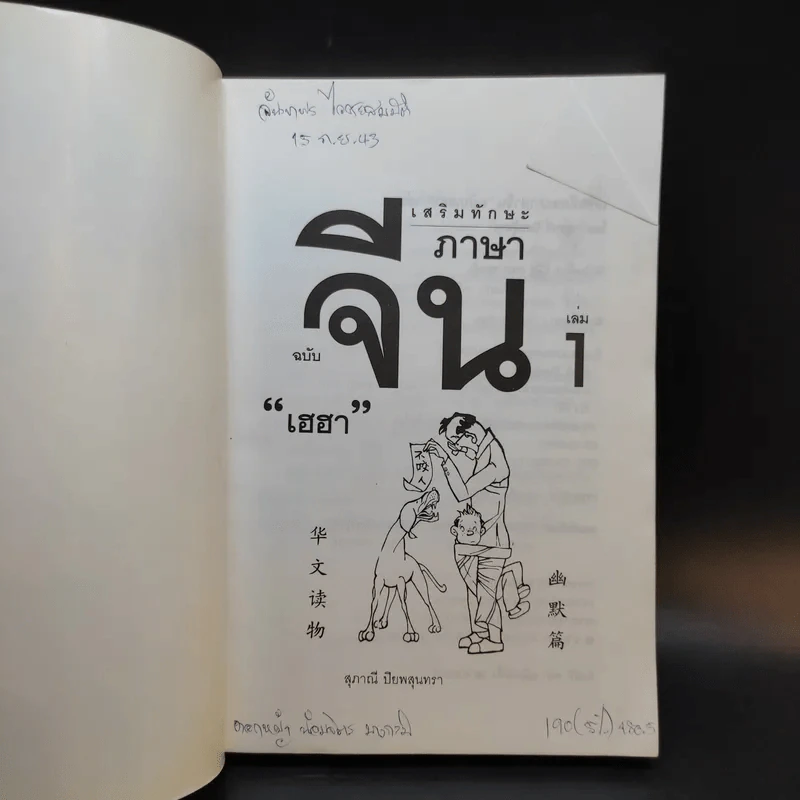 15 ก.ย. 43
เสริมทักษะ
ภาษา
จีน
ฉบับ
เล่ม
1
“เฮฮา”
不咬人
华文读物
幽默篇
สุภาณี ปิยพสุนทรา
190